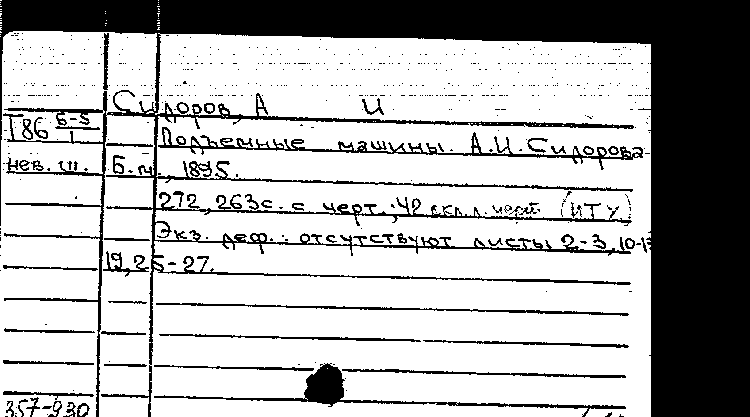 Сидоров, А И
Т86 Б-5/1 Подъемные машины. А.И. Сидорова
нев. ш. Б.м., 1895.
272, 263с. с черт.; 42 вкл.л. черт. (ИТУ)
Экз. деф.: отсутствуют листы 2-3, 10-1
19, 25-27.
357-930